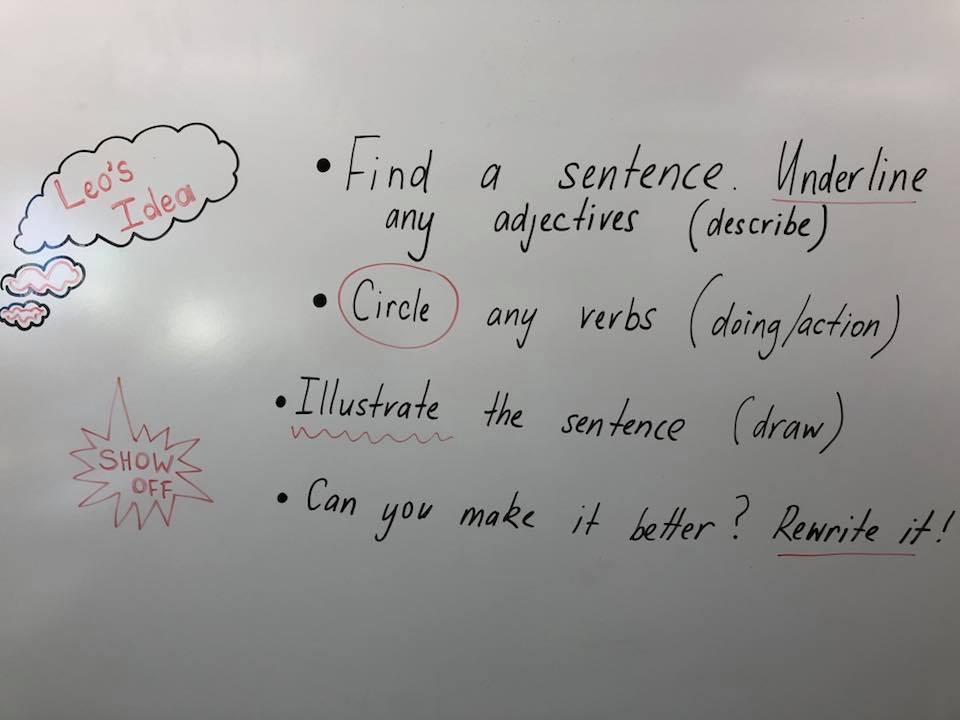 Leo's
Idea
• Find a sentence. Underline
any adjectives (describe)
• Circle any verbs (doing/action)
• Illustrate the sentence (draw)
SHOW
OFF
• Can you make it better? Rewrite it!